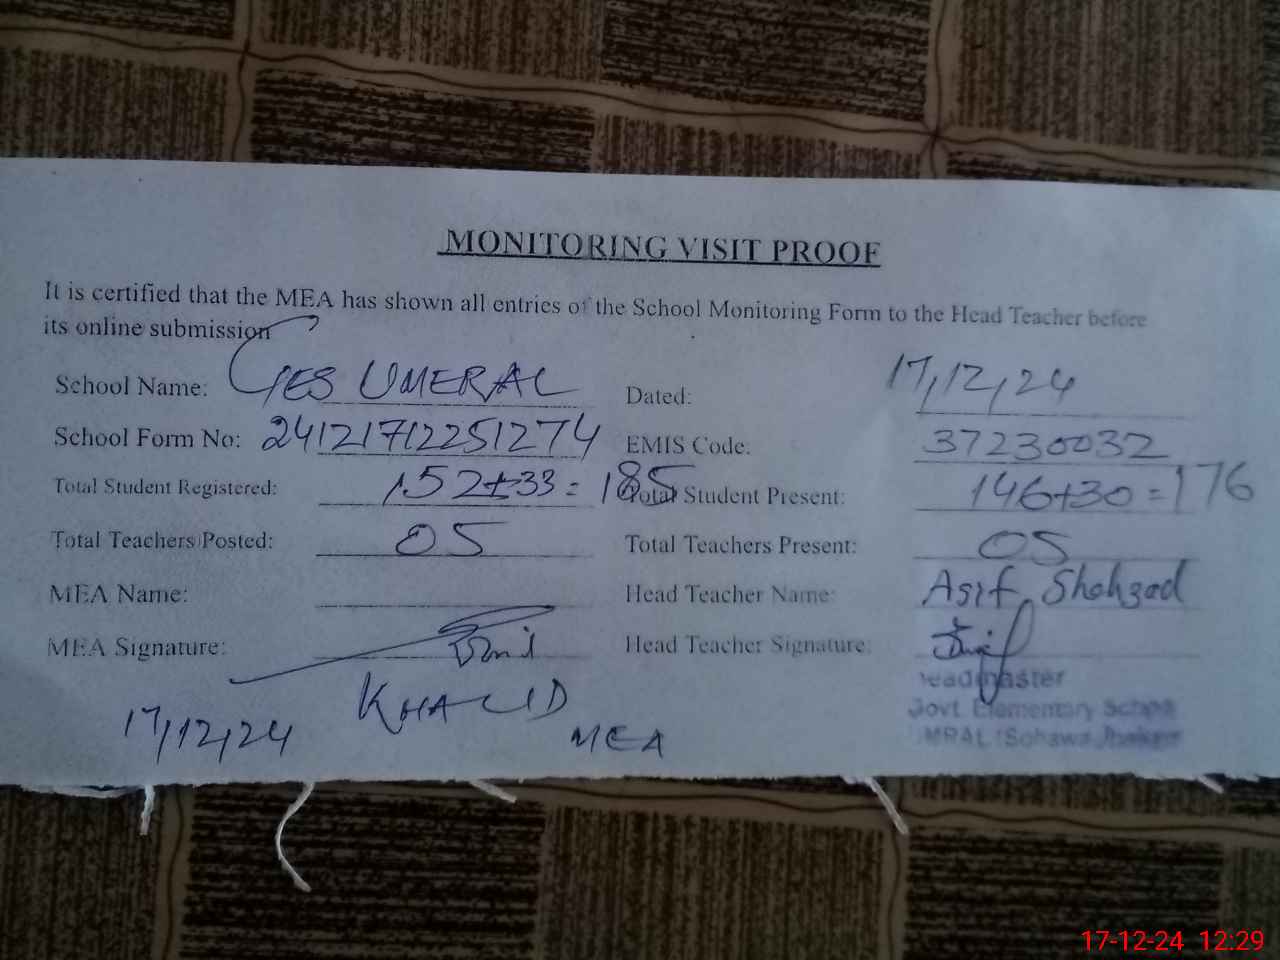 MONITORING VISIT PROOF
It is certified that the MEA has shown all entries of the School Monitoring Form to the Head Teacher before
its online submission
School Name: GES UMERAL Dated: 17/12/24
School Form No: 24121712251274 EMIS Code: 37230032
Total Student Registered: 152+33 = 185 Total Student Present: 146+30 = 176
Total Teachers Posted: 05 Total Teachers Present: 05
MEA Name: Head Teacher Name: Asif Shahzad
MEA Signature: Head Teacher Signature:
Headmaster
17/12/24 KHALID MEA Govt. Elementary School
MRAL (Sohawa Jhelum)
17-12-24 12:29